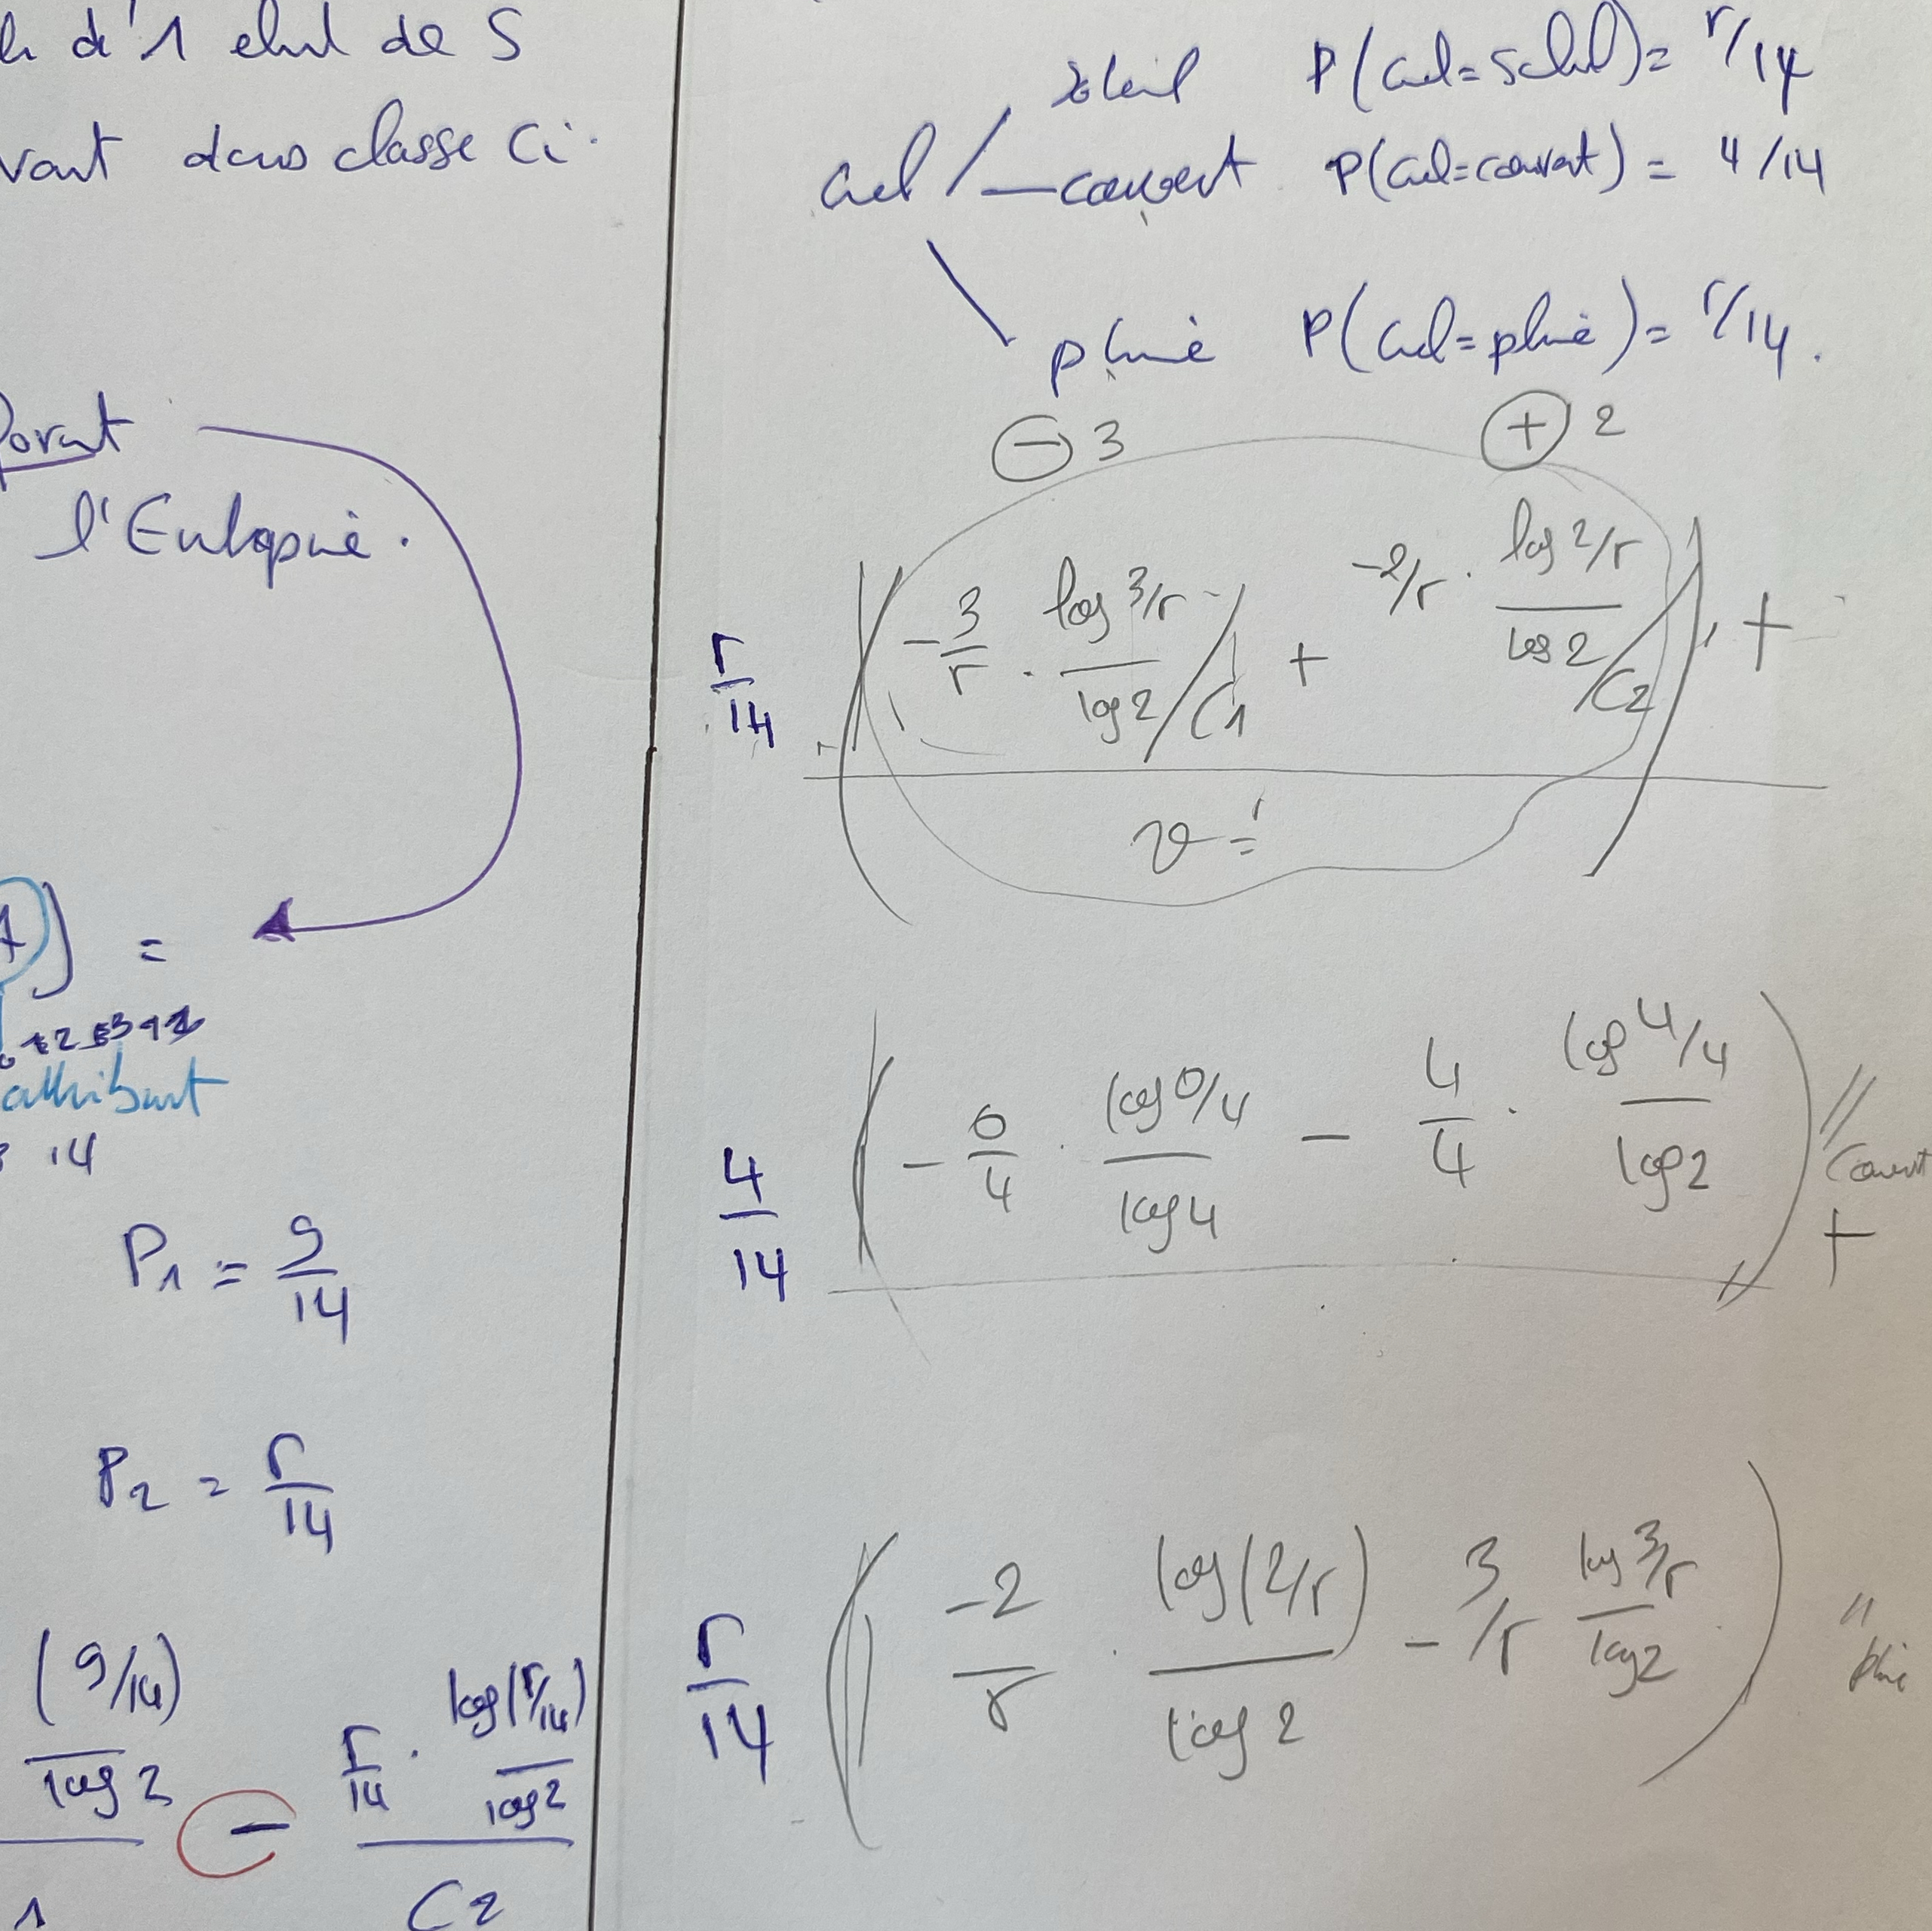 d'1 elmt de S
vant dans classe Ci.
l'Entropie.
) =
attribut
14
P1 = 9/14
P2 = 5/14
(9/14)
log 2
- 5/14 . log(5/14) / log2
C2
soleil P(ciel=soleil) = 5/14
ciel — couvert P(ciel=couvert) = 4/14
pluie P(ciel=pluie) = 5/14.
- 3 + 2
5/14 ( -3/5 . log 3/5 / log2 / C1 + -2/5 . log 2/5 / log 2 / C2 ) +
v =
4/14 ( - 0/4 . log 0/4 / log 4 - 4/4 . log 4/4 / log2 ) // couvert
+
5/14 ( -2/5 . log(2/5) / log 2 - 3/5 log 3/5 / log2 ) " pluie